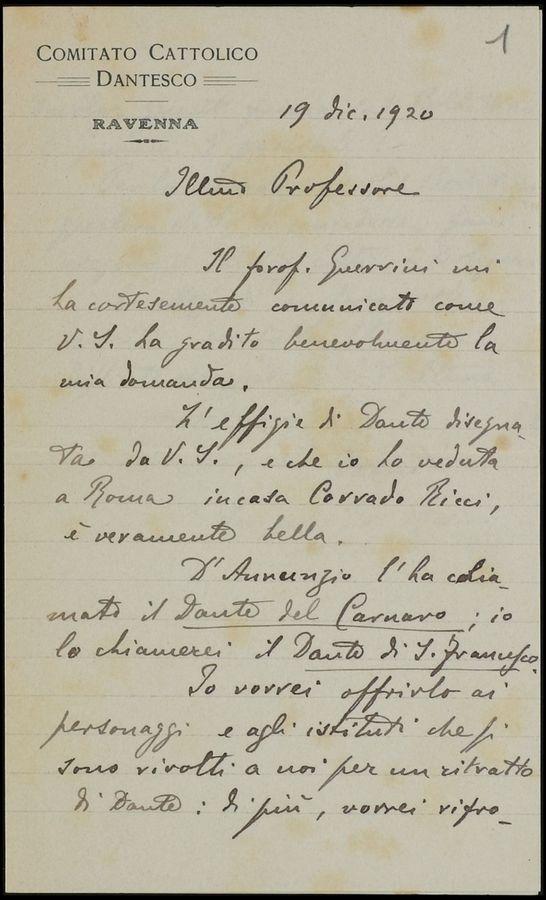 1
COMITATO CATTOLICO
DANTESCO
RAVENNA
19 dic. 1920
Illmo Professore
Il prof. Guerrini mi
ha cortesemente comunicato come
V. S. ha gradito benevolmente la
mia domanda.
L'effigie di Dante disegna-
ta da V. S., e che io ho veduta
a Roma in casa Corrado Ricci,
è veramente bella.
D'Annunzio l'ha chia-
mato il Dante del Carnaro; io
lo chiamerei il Dante di S. Francesco.
Io vorrei offrirlo ai
personaggi e agli istituti che si
sono rivolti a noi per un ritratto
di Dante: di più, vorrei ripro-